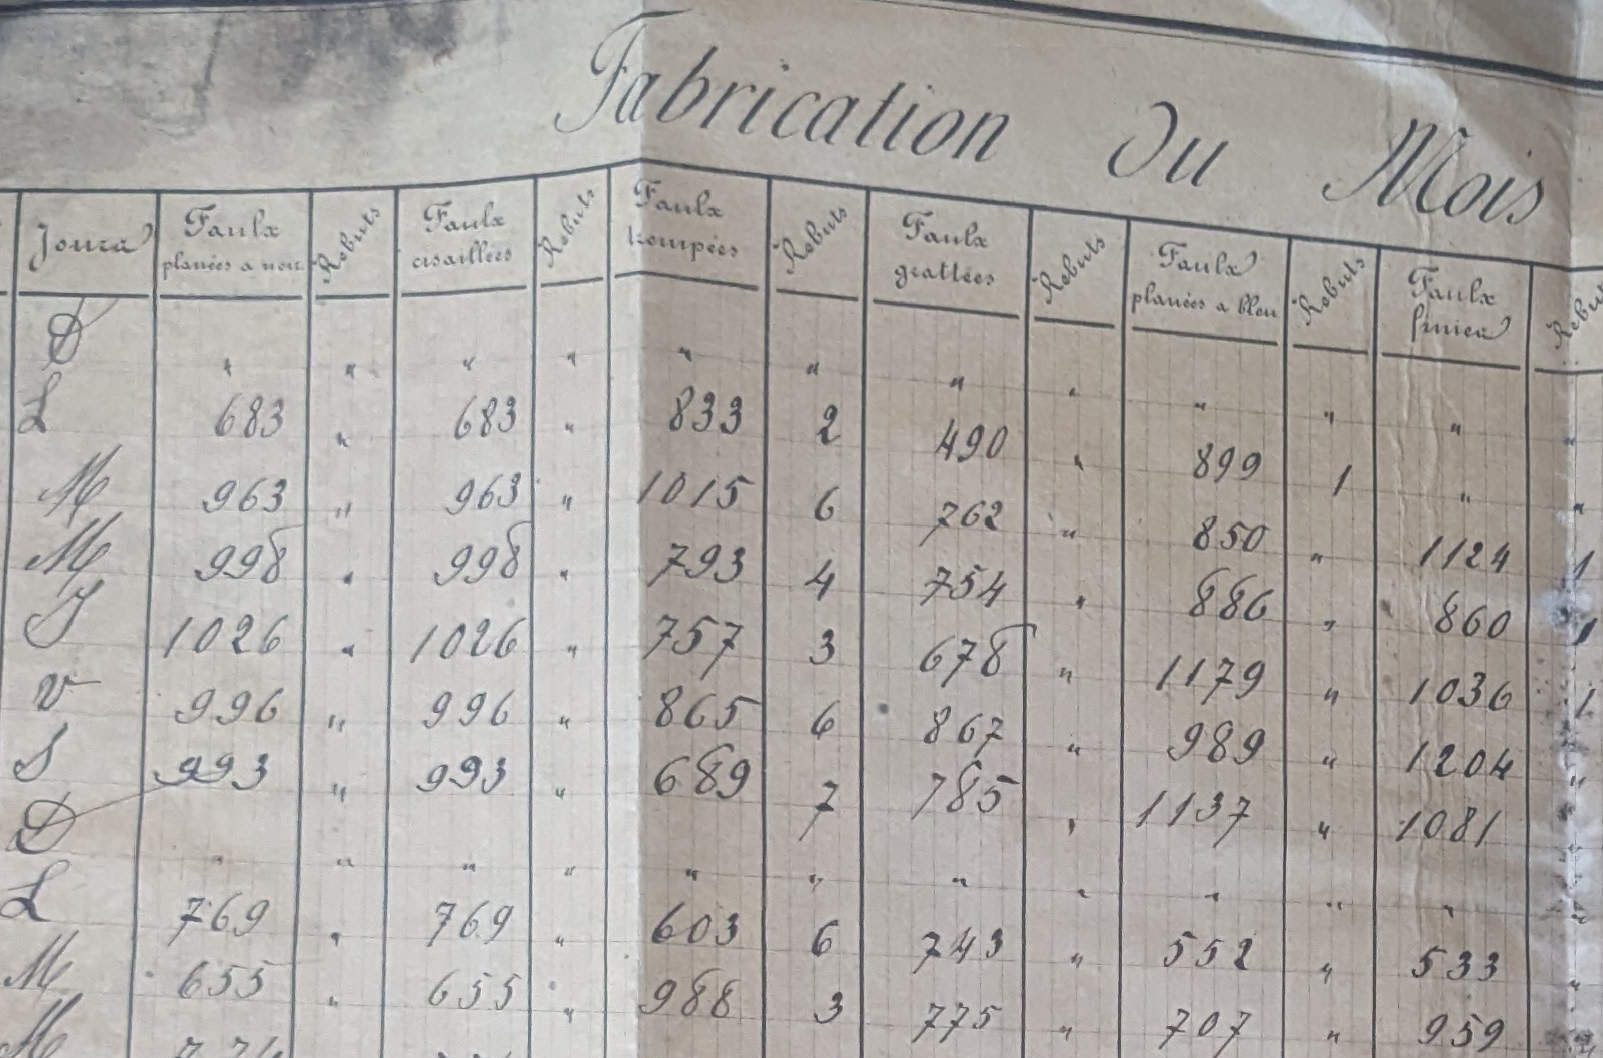 Fabrication du Mois
Jours Faulx planées a noir Rebuts Faulx cisaillées Rebuts Faulx trempées Rebuts Faulx grattées Rebuts Faulx planées a bleu Rebuts Faulx finies Rebuts
D " " " " " " " " " " " "
L 683 " 683 " 833 2 490 " 899 1 " "
M 963 " 963 " 1015 6 762 " 850 " 1124 1
M 998 " 998 " 793 4 754 " 886 " 860 1
J 1026 " 1026 " 757 3 678 " 1179 " 1036 1
V 996 " 996 " 865 6 867 " 989 " 1204 "
S 993 " 993 " 689 7 785 " 1137 " 1081 "
D " " " " " " " " " " " "
L 769 " 769 " 603 6 743 " 552 " 533 "
M 655 " 655 " 988 3 775 " 707 " 959
M